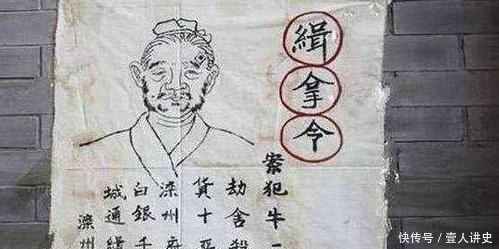 緝拿令
案犯牛一
劫舍殺
貨十惡
滦州府
白銀千
城通緝
滦州
快传号/壹人讲史